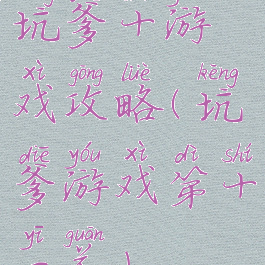 坑爹十游
xì gōng lüè kēng
戏攻略(坑
diē yóu xì dì shí
爹游戏第十
yī guān